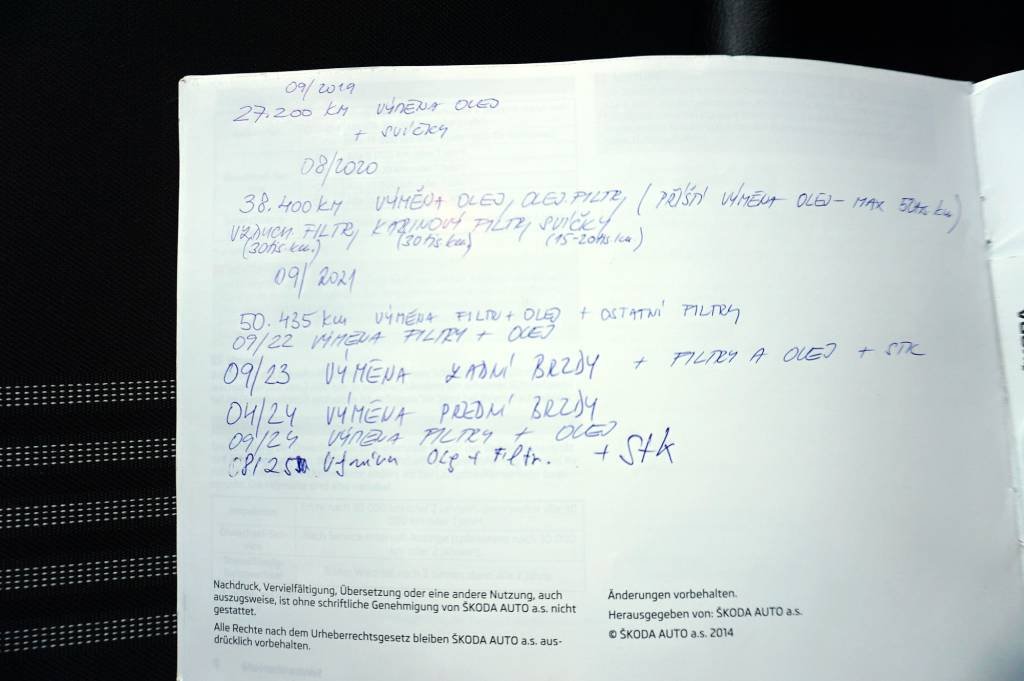 09/2019
27.200 KM VÝMĚNA OLEJ
+ SVÍČKY
08/2020
38.400KM VÝMĚNA OLEJ, OLEJ.FILTR, (PŘÍŠTÍ VÝMĚNA OLEJ - MAX 50tis km)
VZDUCH. FILTR, KABINOVÝ FILTR, SVÍČKY
(30tis.km.) (30tis km) (15-20tis.km)
09/2021
50.435 km VÝMĚNA FILTR + OLEJ + OSTATNÍ FILTRY
09/22 VÝMĚNA FILTRY + OLEJ
09/23 VÝMĚNA ZADNÍ BRZDY + FILTRY A OLEJ + STK
04/24 VÝMĚNA PŘEDNÍ BRZDY
09/24 VÝMĚNA FILTRY + OLEJ
08/25 + Filtr. + Stk
Nachdruck, Vervielfältigung, Übersetzung oder eine andere Nutzung, auch
auszugsweise, ist ohne schriftliche Genehmigung von ŠKODA AUTO a.s. nicht
gestattet.
Alle Rechte nach dem Urheberrechtsgesetz bleiben ŠKODA AUTO a.s. aus-
drücklich vorbehalten.
Änderungen vorbehalten.
Herausgegeben von: ŠKODA AUTO a.s.
© ŠKODA AUTO a.s. 2014